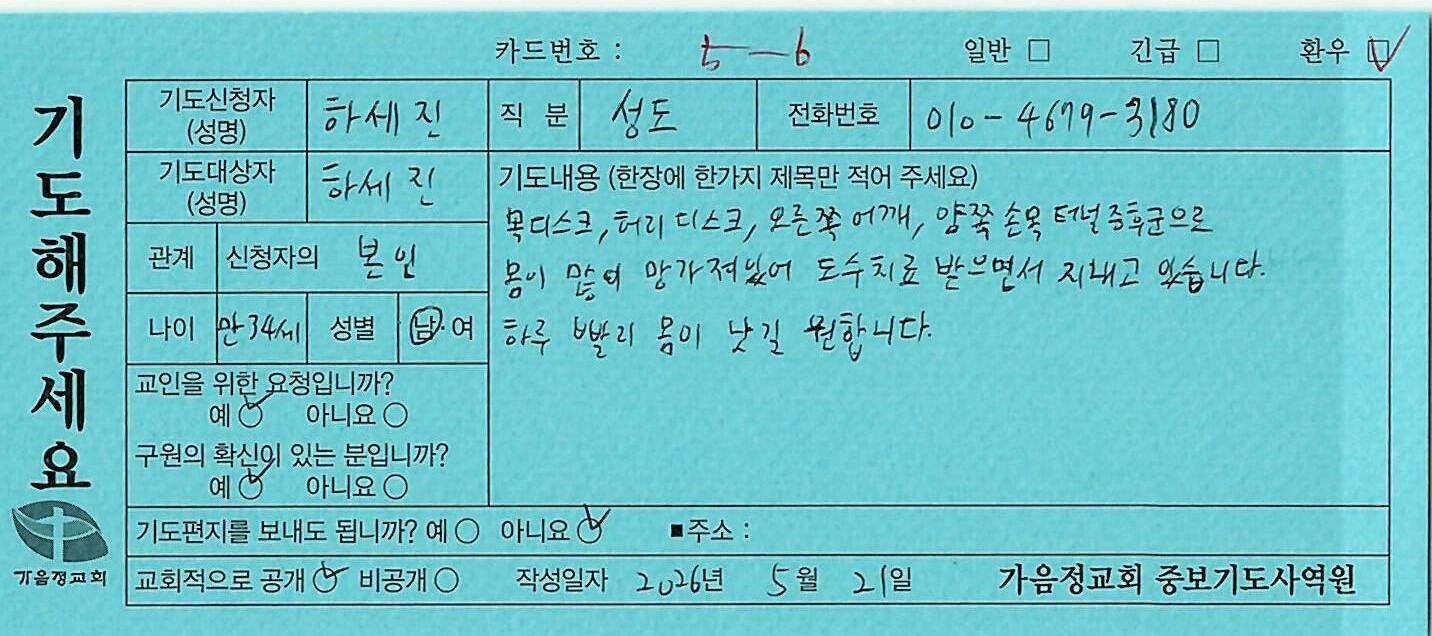 카드번호 : 5-6 일반 □ 긴급 □ 환우 ☑
기도해주세요
기도신청자 (성명) 하세진 직 분 성도 전화번호 010-4679-3180
기도대상자 (성명) 하세진
관계 신청자의 본인
나이 만 34세 성별 남·여
교인을 위한 요청입니까?
예 ☑ 아니요 ○
구원의 확신이 있는 분입니까?
예 ☑ 아니요 ○
기도내용 (한장에 한가지 제목만 적어 주세요)
목디스크, 허리 디스크, 오른쪽 어깨, 양쪽 손목 터널증후군으로
몸이 많이 망가져있어 도수치료 받으면서 지내고 있습니다.
하루 빨리 몸이 낫길 원합니다.
기도편지를 보내도 됩니까? 예 ○ 아니요 ☑ ■주소 :
교회적으로 공개 ☑ 비공개 ○ 작성일자 2026년 5월 21일 가음정교회 중보기도사역원
가음정교회